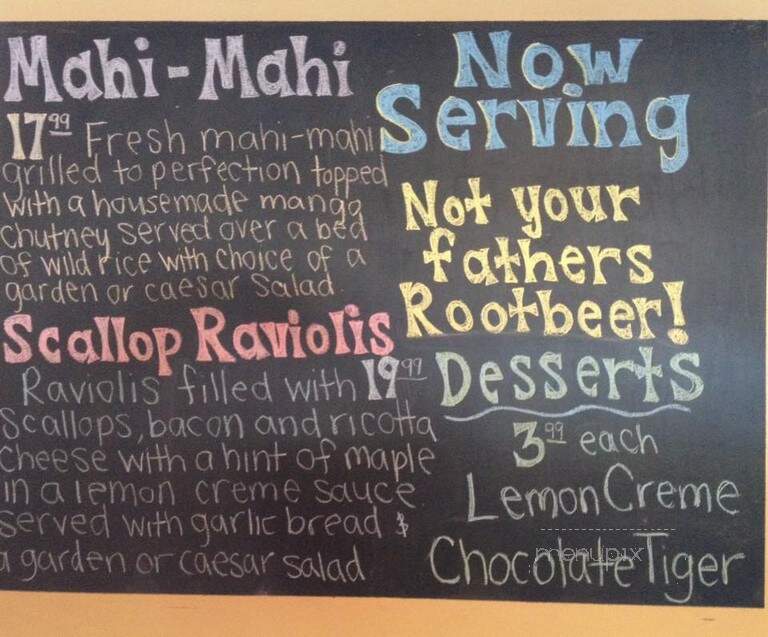 Mahi-Mahi
17.99 Fresh mahi-mahi
grilled to perfection topped
with a housemade mango
chutney served over a bed
of wild rice with choice of a
garden or caesar salad.
Scallop Raviolis
Raviolis filled with 19.99
Scallops, bacon and ricotta
cheese with a hint of maple
in a lemon creme sauce
served with garlic bread &
a garden or caesar salad
Now
Serving
Not your
fathers
Rootbeer!
Desserts
3.99 each
Lemon Creme
Chocolate Tiger
menupix